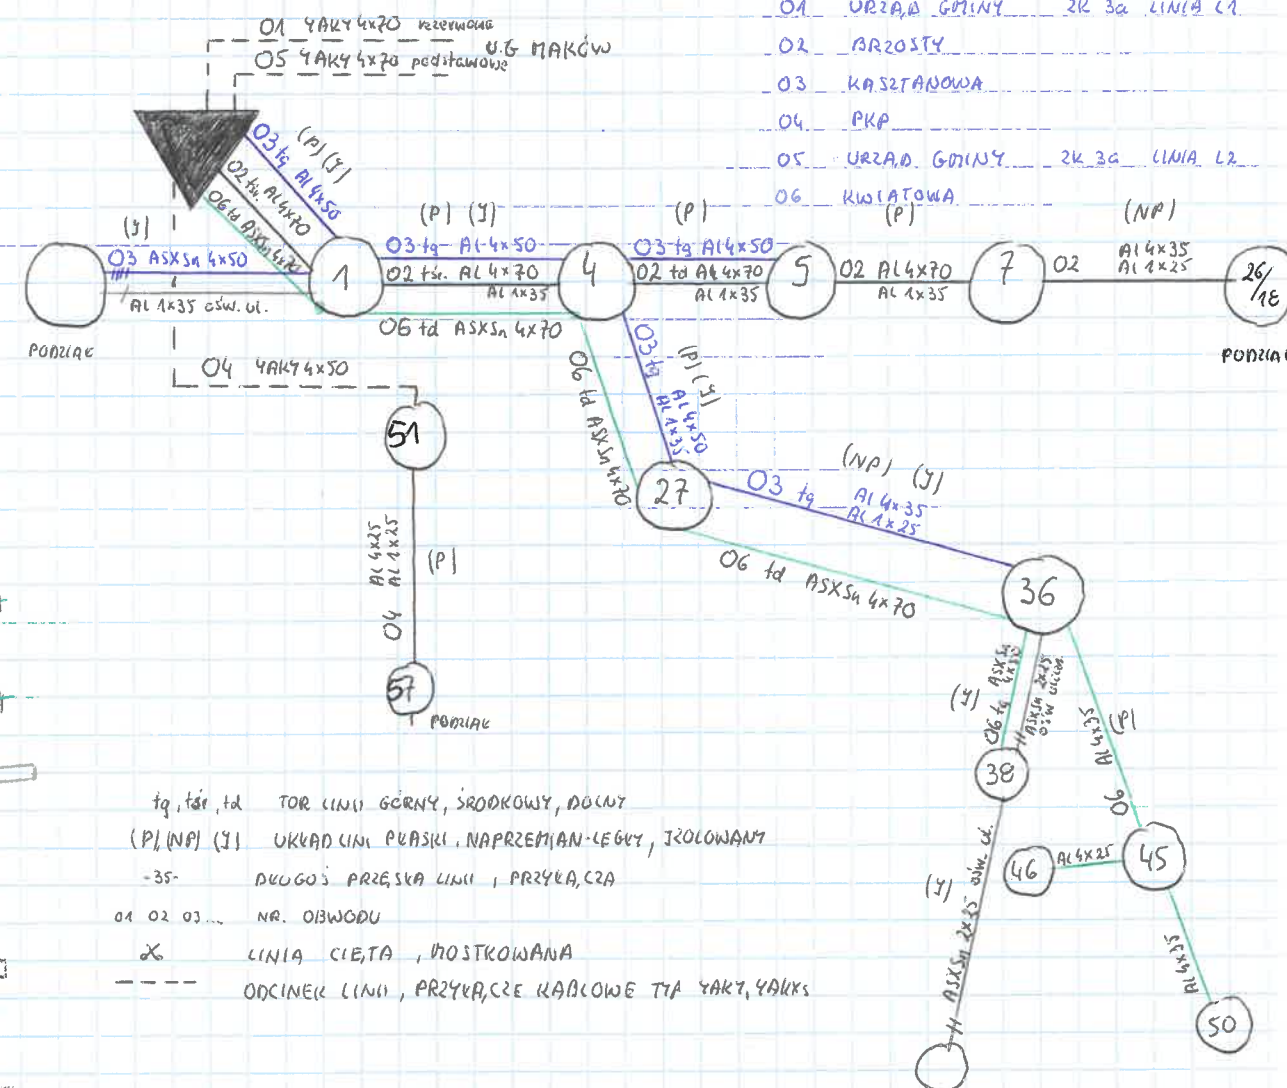 01 YAKY 4x70 rezerwowe
05 YAKY 4x70 podstawowe
U.G MAKÓW
01 URZĄD GMINY 2K 3a LINIA L1
02 BRZOSTY
03 KASZTANOWA
04 PKP
05 URZĄD GMINY 2K 3a LINIA L2
06 KWIATOWA
03 tg Al 4x50
(P) (J)
02 tśr. Al 4x70
06 td ASXSn 4x70
(J)
03 ASXSn 4x50
Al 1x35 ośw. ul.
PODZIAŁ
1
(P) (J)
03 tg Al 4x50
02 tśr. Al 4x70
Al 1x35
06 td ASXSn 4x70
4
(P)
03 tg Al 4x50
02 td Al 4x70
Al 1x35
5
(P)
02 Al 4x70
Al 1x35
7
(NP)
02
Al 4x35
Al 1x25
26/18
PODZIA
04 YAKY 4x50
51
04
Al 4x25
Al 1x25
(P)
57
PODZIAŁ
03 tg
Al 4x50
Al 1x35
(P) (J)
06 td ASXSn 4x70
27
(NP) (J)
03 tg
Al 4x35
Al 1x25
06 td ASXSn 4x70
36
(J)
06 tg ASXSn
ASXSn 2x25
38
(P)
Al 4x35
06
45
Al 4x25
46
Al 4x35
50
(J)
ASXSn 2x25 ośw. ul.
tg, tśr, td TOR LINII GÓRNY, ŚRODKOWY, DOLNY
(P) (NP) (J) UKŁAD LINI PŁASKI, NAPRZEMIAN-LEGŁY, IZOLOWANY
-35- DŁUGOŚ PRZĘSŁA LINII, PRZYŁĄCZA
01 02 03... NR. OBWODU
LINIA CIĘTA, MOSTKOWANA
ODCINEK LINII, PRZYŁĄCZE KABLOWE TYP YAKY, YAKXS